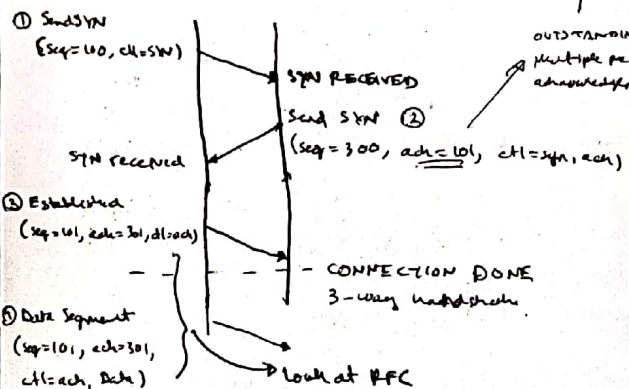 ① Send SYN
(Seq=100, ctl=SYN)
SYN RECEIVED
Send SYN ②
(seq=300, ack=101, ctl=syn, ack)
OUTSTANDIN
Multiple
SYN received
③ Established
(seq=101, ack=301, ctl=ack)
CONNECTION DONE
3-way handshake
Data Segment
(seq=101, ack=301,
ctl=ack, Data)
Look at RFC